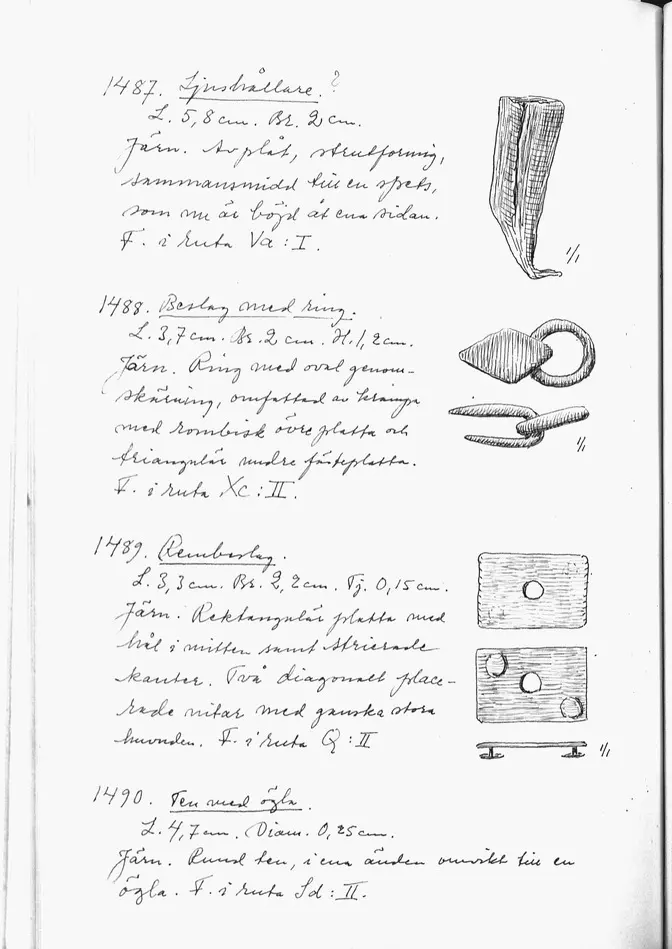 1487. Ljushållare.?
L. 5,8 cm. Br. 2 cm.
Järn. Av plåt, strutformig,
sammansmidd till en spets,
som nu är böjd åt ena sidan.
F. i ruta Va : I.
1/1
1488. Beslag med ring.
L. 3,7 cm. Br. 2 cm. H. 1,2 cm.
Järn. Ring med oval genom-
skärning, omfattad av krampa
med rombisk övre platta och
triangulär undre fästeplatta.
F. i ruta Xc : II.
1/1
1489. Rembeslag.
L. 3,3 cm. Br. 2,2 cm. Tj. 0,15 cm.
Järn. Rektangulär platta med
hål i mitten samt strierade
kanter. Två diagonalt place-
rade nitar med ganska stora
huvuden. F. i ruta Q : II
1/1
1490. Ten med ögla.
L. 4,7 cm. Diam. 0,25 cm.
Järn. Rund ten, i ena änden omvikt till en
ögla. F. i ruta Sd : II.